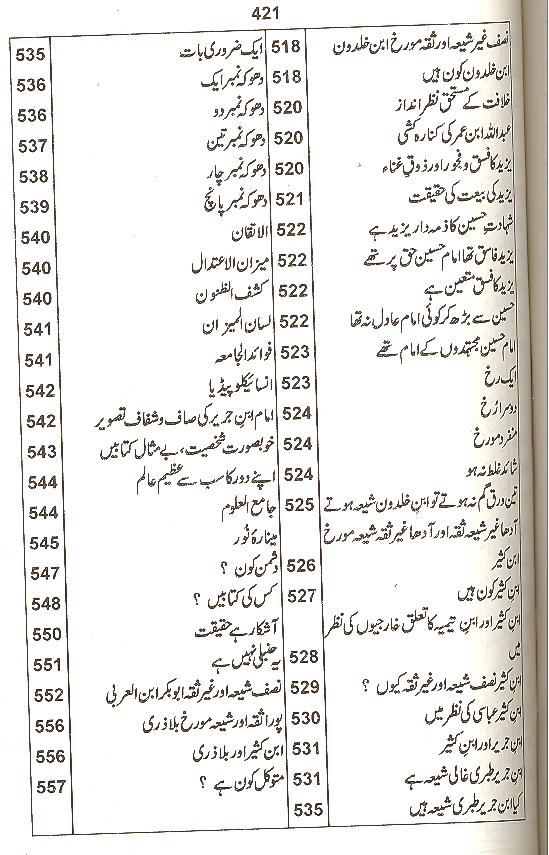 421
نصف غیر شیعہ اور ثقہ مورخ ابن خلدون 518
ابن خلدون کون ہیں 518
خلافت کے مستحق نظر انداز 520
عبداللہ ابن عمر کی کنارہ کشی 520
یزید کا فسق و فجور اور ذوقِ غناء 520
یزید کی بیعت کی حقیقت 521
شہادتِ حسین کا ذمہ دار یزید ہے 522
یزید فاسق تھا امام حسین حق پر تھے 522
یزید کا فسق متعین ہے 522
حسین سے بڑھ کر کوئی امام عادل نہ تھا 522
امام حسین مجتہدوں کے امام تھے 523
ایک رخ 523
دوسرا رُخ 524
منفرد مورخ 524
شائد غلط نہ ہو 524
تین ورق گم نہ ہوتے تو ابنِ خلدون شیعہ ہوتے 525
آدھا غیر شیعہ ثقہ اور آدھا غیر ثقہ شیعہ مورخ
ابن کثیر 526
ابنِ کثیر کون ہیں 527
ابنِ کثیر اور ابنِ تیمیہ کا تعلق خارجیوں کی نظر
میں 528
ابن کثیر نصف شیعہ اور غیر ثقہ کیوں ؟ 529
ابنِ کثیر عباسی کی نظر میں 530
ابنِ جریر اور ابنِ کثیر 531
ابنِ جریر طبری غالی شیعہ ہے 531
کیا ابنِ جریر طبری شیعہ ہیں 535
ایک ضروری بات 535
دھوکہ نمبر ایک 536
دھوکہ نمبر دو 536
دھوکہ نمبر تین 537
دھوکہ نمبر چار 538
دھوکہ نمبر پانچ 539
الاتقان 540
میزان الاعتدال 540
کشف الظنون 540
لسان المیزان 541
فوائد الجامعہ 541
انسائیکلوپیڈیا 542
امام ابنِ جریر کی صاف و شفاف تصویر 542
خوبصورت شخصیت، بے مثال کتابیں 543
اپنے دور کا سب سے عظیم عالم 544
جامع العلوم 544
مینارۂ نُور 545
دشمن کون ؟ 547
کس کی کتابیں ؟ 548
آشکار ہے حقیقت 550
یہ حنبلی نہیں ہے 551
نصف شیعہ اور غیر ثقہ ابوبکر ابن العربی 552
پورا ثقہ اور شیعہ مورخ بلاذری 556
ابن کثیر اور بلاذری 556
متوکل کون ہے ؟ 557